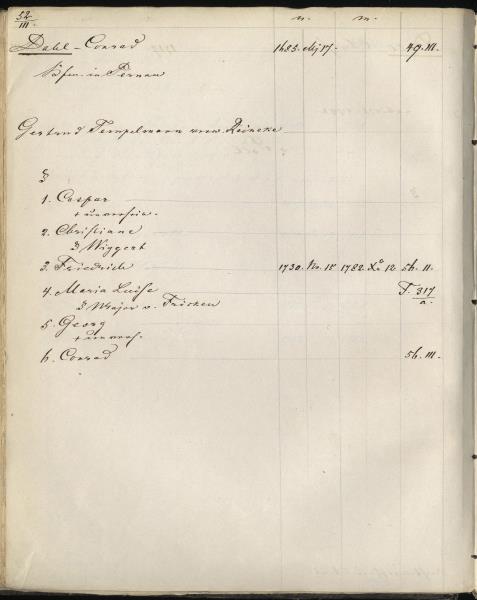 52
III.
n. m.
Dahl - Conrad 1685. Mj 17. 49. III.
Kfm. in Pernau
Gertrud Tempelmann verw. Reincke
1. Caspar
† unverh.
2. Christiane
Wiggert
3. Friedrich 1730. 1782. 12 56. II.
4. Maria Luise T. 317
a.
Major v. Fricken
5. Georg
† unverh.
6. Conrad 56. III.